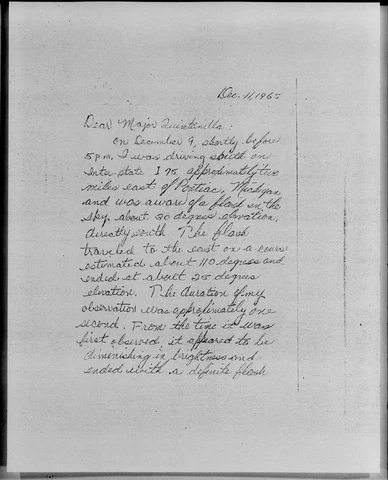 Dec. 11, 1965
Dear Major Quintanilla:
On December 9, shortly before
5 p.m. I was driving south on
Interstate I 75 approximately two
miles east of Pontiac, Michigan
and was aware of a flash in the
sky about 30 degrees elevation,
directly south. The flash
traveled to the east on a course
estimated about 110 degrees and
ended at about 25 degrees
elevation. The duration of my
observation was approximately one
second. From the time it was
first observed, it appeared to be
diminishing in brightness and
ended with a definite flash